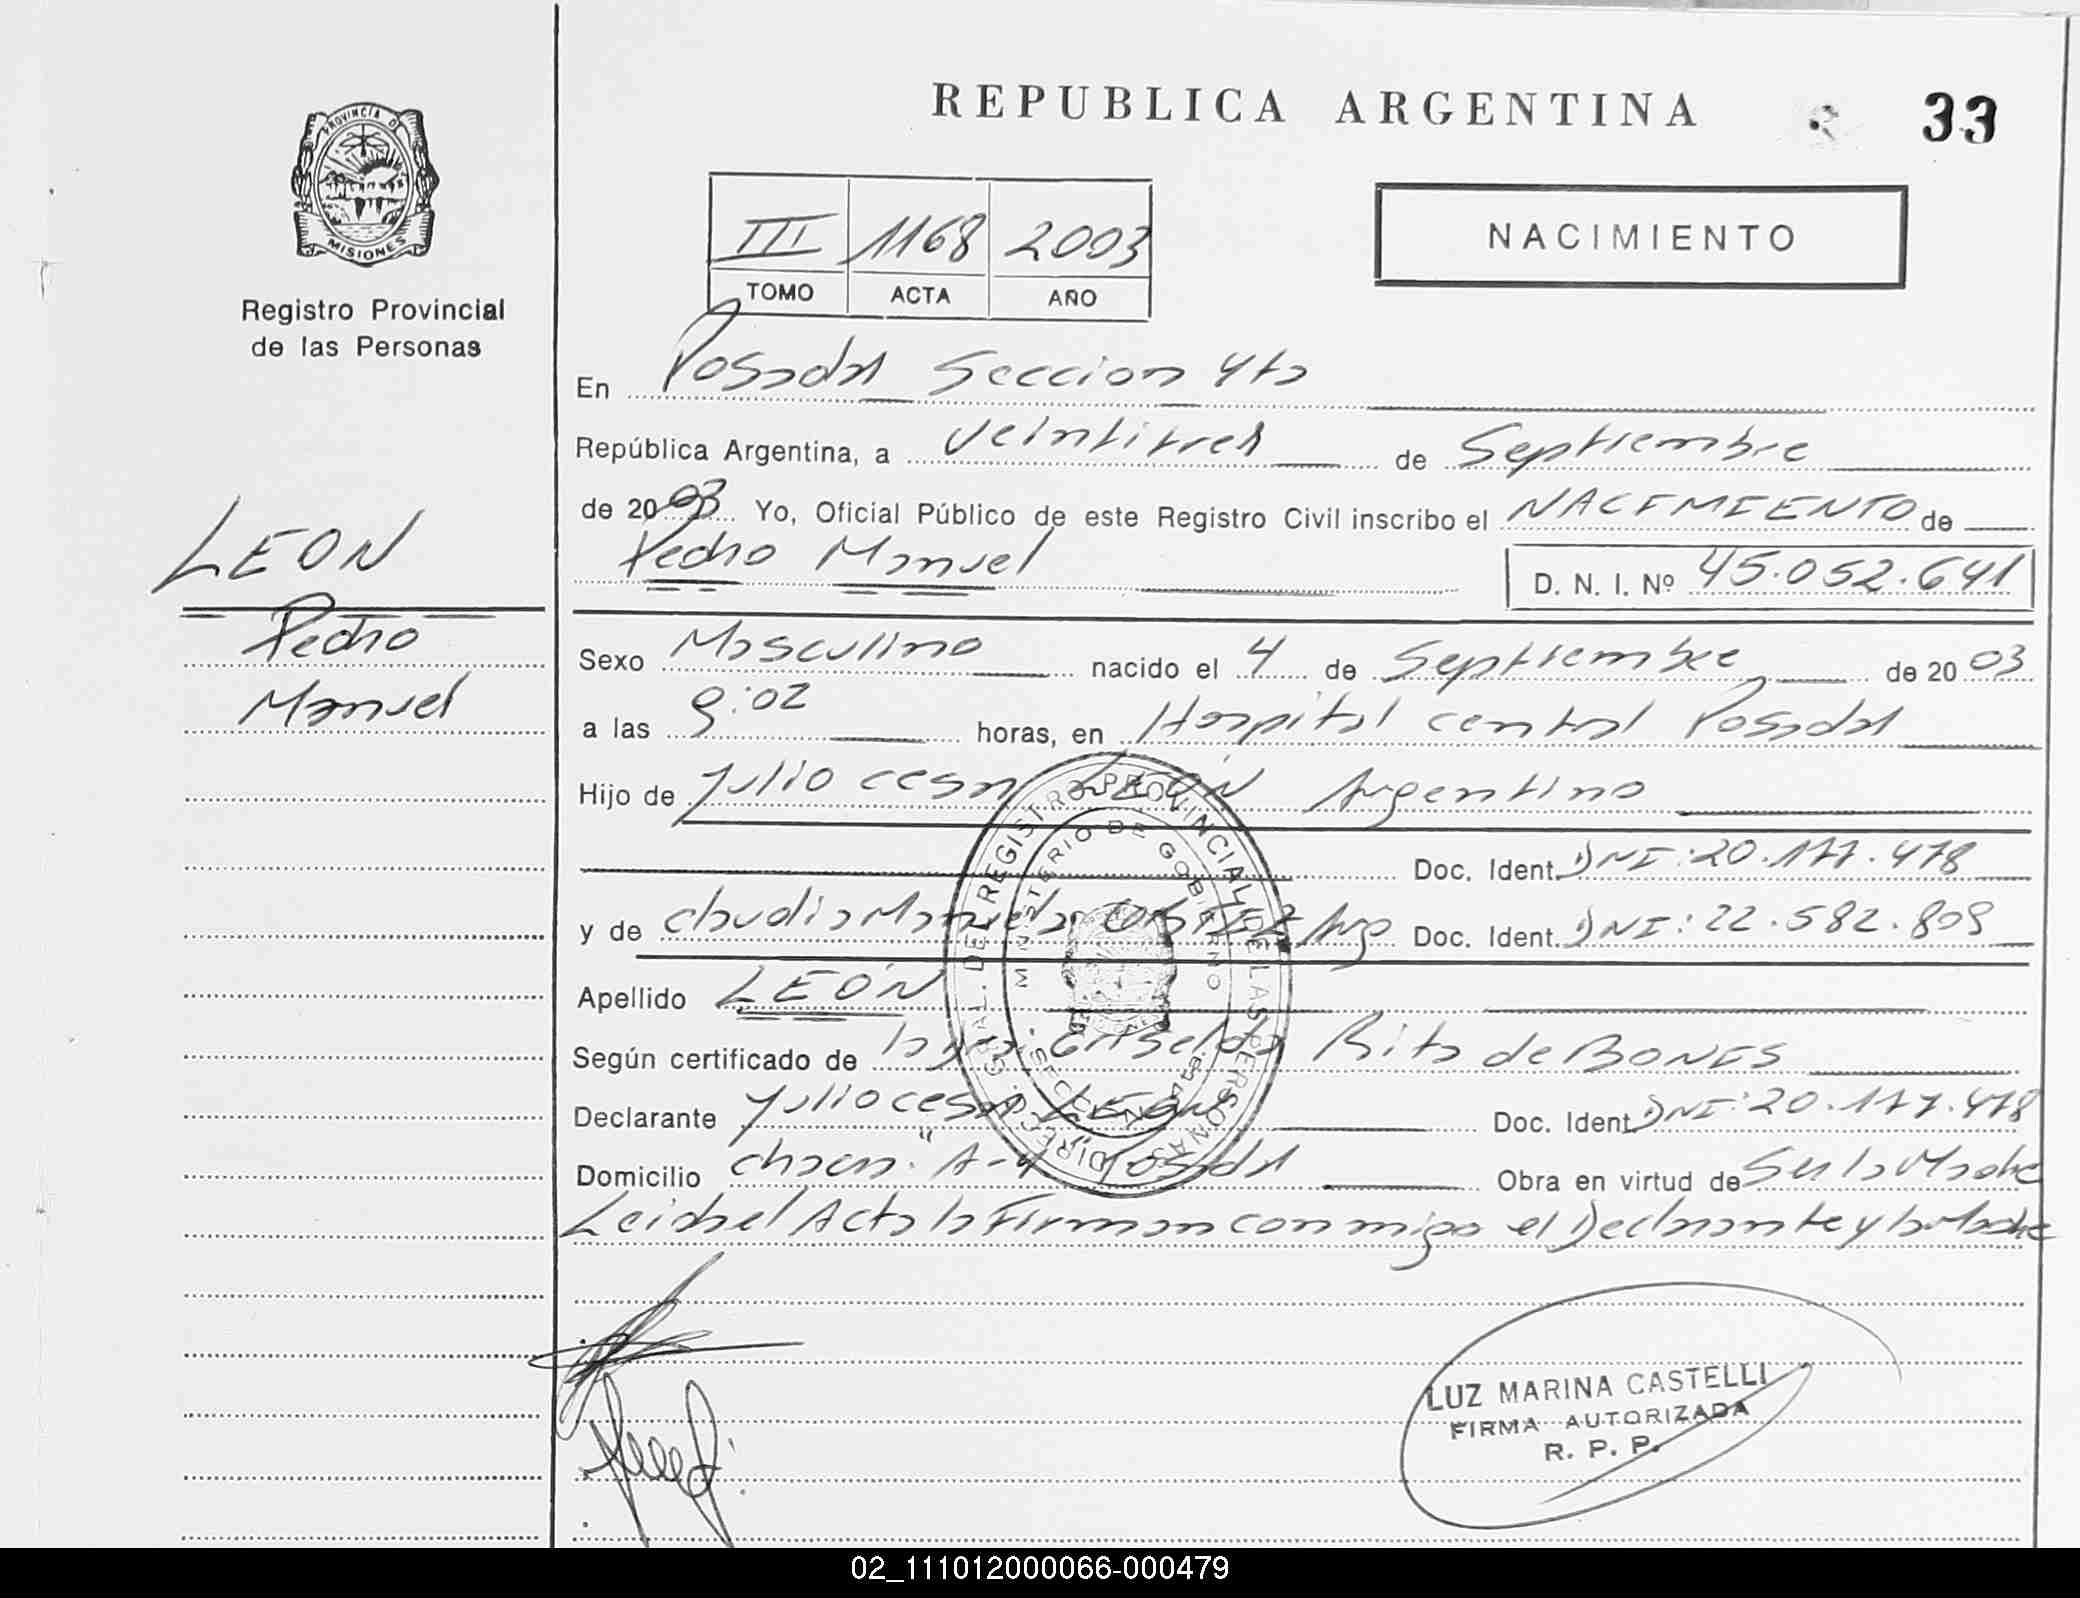 REPUBLICA ARGENTINA 33
PROVINCIA DE MISIONES
Registro Provincial
de las Personas
III 1168 2003
TOMO ACTA AÑO
NACIMIENTO
En Posadas Seccion 4ta
República Argentina, a Veintitres de Septiembre
de 2003 Yo, Oficial Público de este Registro Civil inscribo el NACIMIENTO de
Pedro Manuel D. N. I. Nº 45.052.641
LEON
Pedro
Manuel
Sexo Masculino nacido el 4 de Septiembre de 2003
a las 9:02 horas, en Hospital central Posadas
Hijo de Julio cesar LEON Argentino
Doc. Ident. DNI: 20.177.478
y de claudia Manuela Arg Doc. Ident. DNI: 22.582.809
Apellido LEON
Según certificado de Griselda Rita de BONES
Declarante Julio cesar LEON Doc. Ident. DNI: 20.177.478
Domicilio chacra. A-4 Posadas Obra en virtud de Ser la Madre
Leida el Acta la Firman conmigo el Declarante y la Madre
DIREC. GRAL. DEL REGISTRO PROVINCIAL DE LAS PERSONAS
MINISTERIO DE GOBIERNO
SECCION 4ta.
LUZ MARINA CASTELLI
FIRMA AUTORIZADA
R. P. P.
02_111012000066-000479